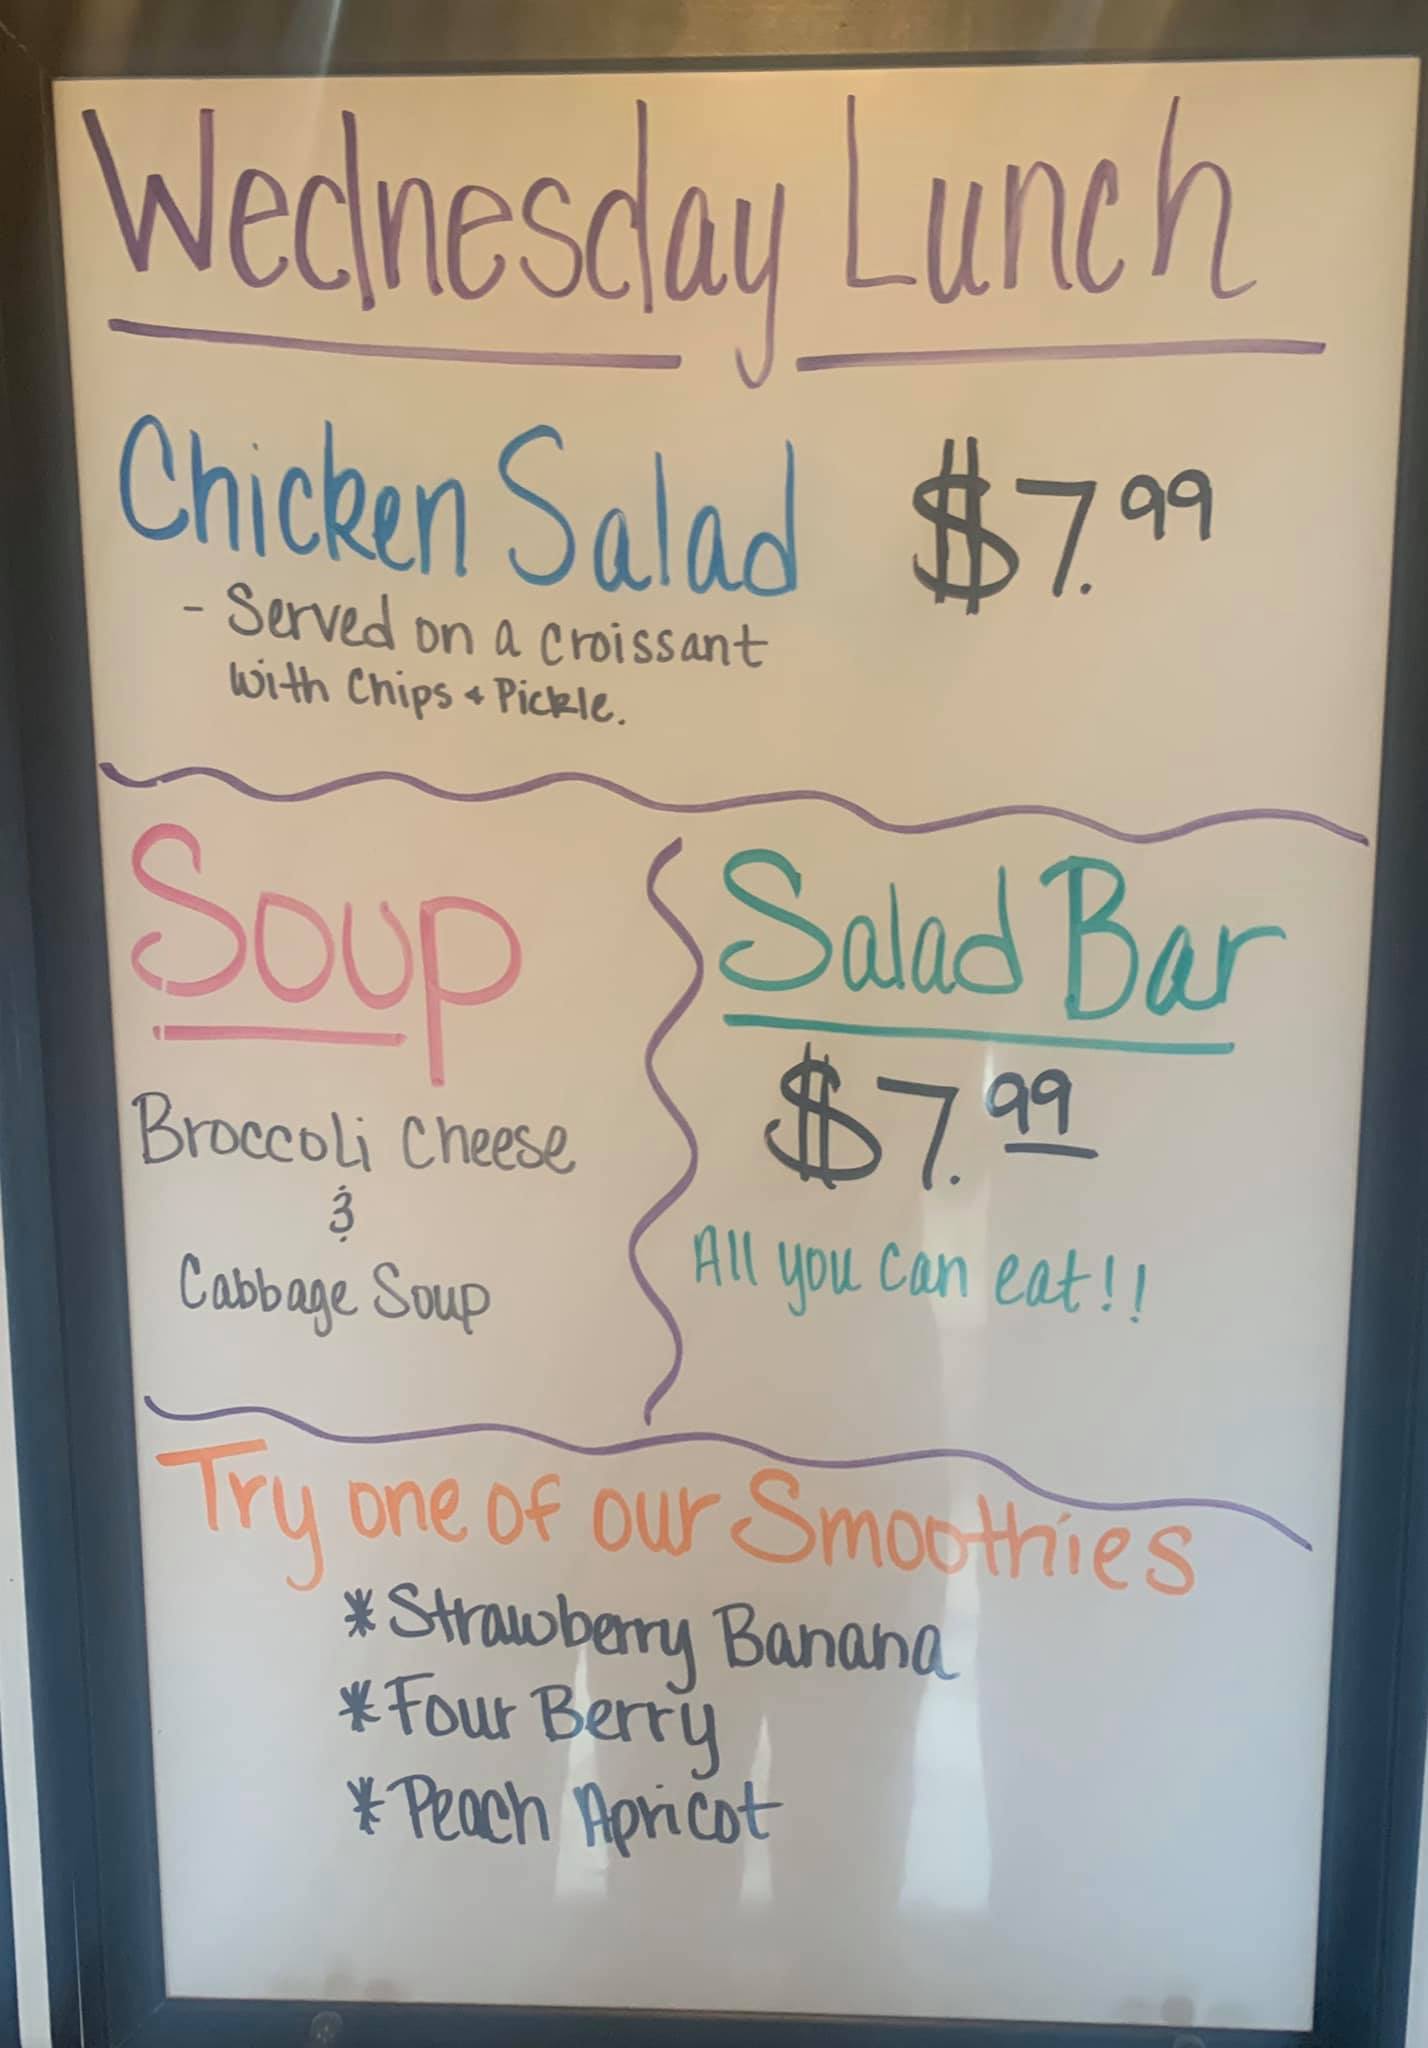 Wednesday Lunch
Chicken Salad $7.99
- Served on a croissant
with Chips + Pickle.
Soup
Broccoli Cheese
&
Cabbage Soup
Salad Bar
$7.99
All you can eat!!
Try one of our Smoothies
*Strawberry Banana
*Four Berry
*Peach Apricot